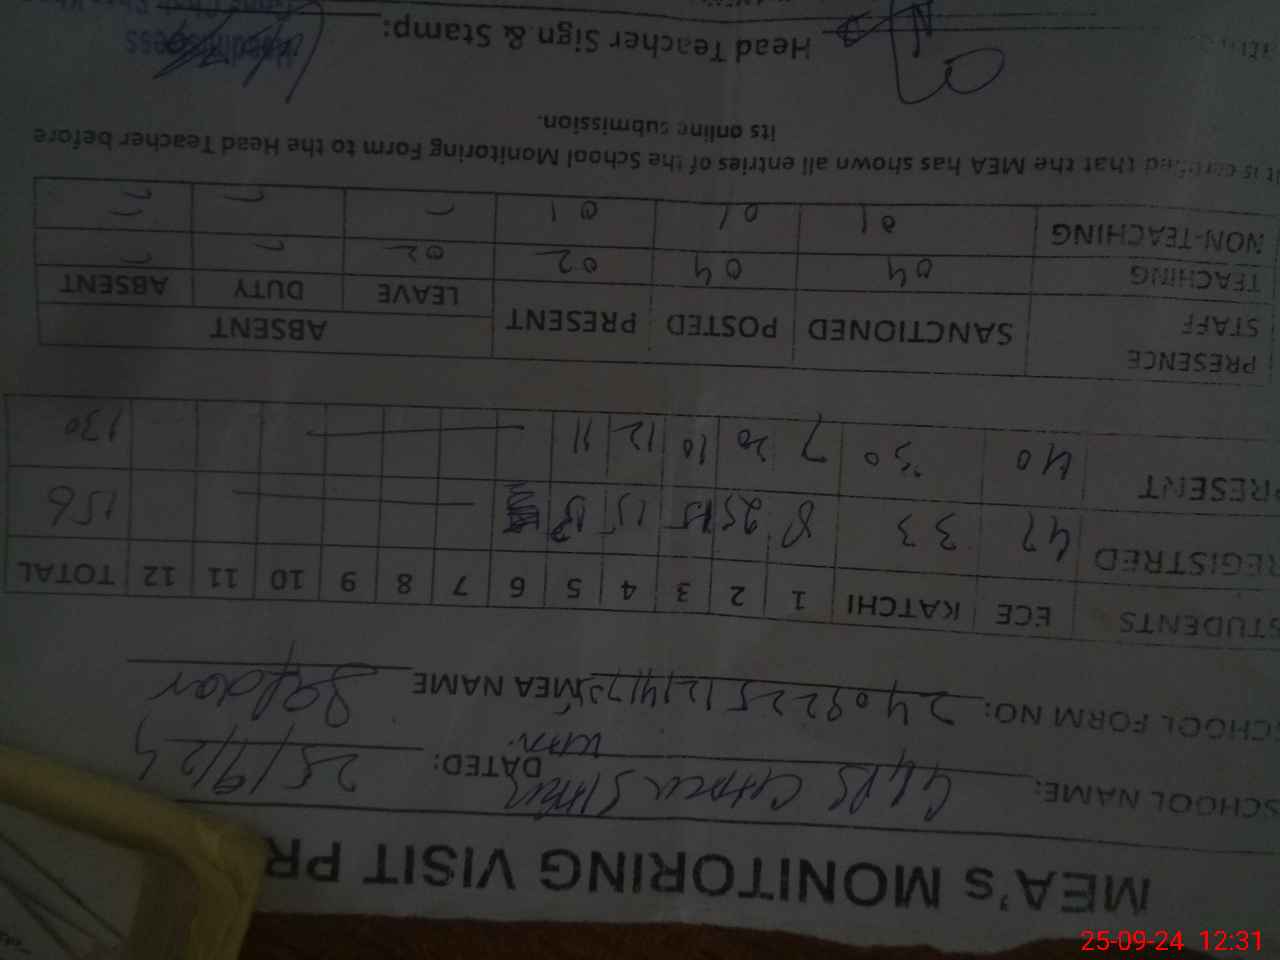 MEA's MONITORING VISIT PR
SCHOOL NAME: DATED: 25/9/24
SCHOOL FORM NO: MEA NAME Safdar
STUDENTS ECE KATCHI 1 2 3 4 5 6 7 8 9 10 11 12 TOTAL
REGISTRED 47 33 8 25 15 15 156
PRESENT 40 30 7 20 10 12 11 130
PRESENCE STAFF SANCTIONED POSTED PRESENT ABSENT
LEAVE DUTY ABSENT
TEACHING 04 04 02 02 - - 
NON-TEACHING 01 01 01 - - -
It is certified that the MEA has shown all entries of the School Monitoring Form to the Head Teacher before
its online submission.
Head Teacher Sign & Stamp:
Headmistress
25-09-24 12:31